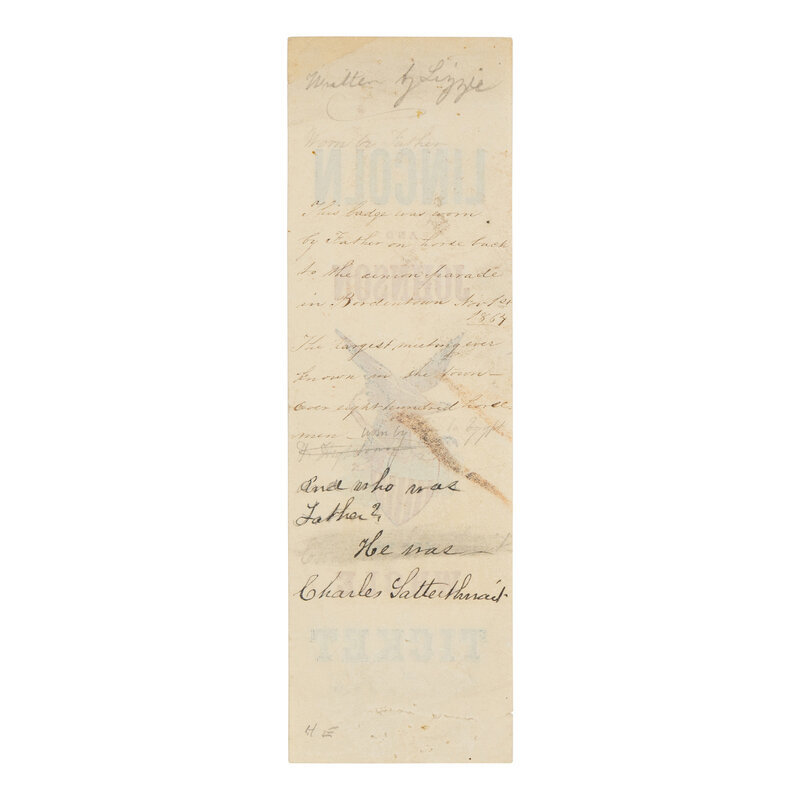 Written by Lizzie
Worn by Father
LINCOLN
This badge was worn
AND
by Father on horse back
JOHNSON
to the union parade
in Bordentown Nov 1st
1864
The largest meeting ever
known in the town—
Over eight hundred horse
men — worn by
And who was
Father?
He was
Charles Satterthwait
TICKET
H E